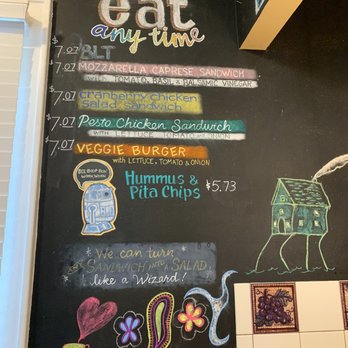 eat
any time
$7.07 BLT
$7.07 MOZZARELLA CAPRESE SANDWICH
with TOMATO, BASIL & BALSAMIC VINEGAR
$7.07 Cranberry Chicken
Salad Sandwich
$7.07 Pesto Chicken Sandwich
with LETTUCE, TOMATO & ONION
$7.07 VEGGIE BURGER
with LETTUCE, TOMATO & ONION
Hummus &
Pita Chips $5.73
We can turn
any SANDWICH into a SALAD,
like a Wizard!